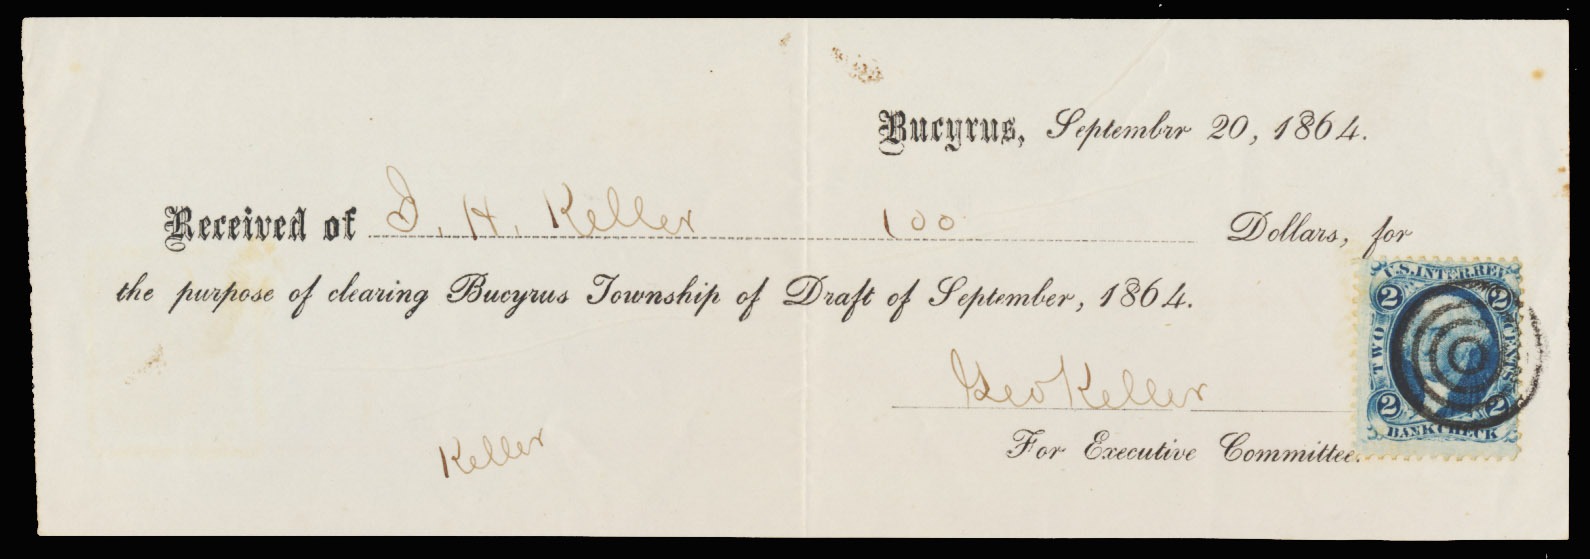 Bucyrus, Septembrr 20, 1864.
Received of J. H. Keller 100 Dollars, for
the purpose of clearing Bucyrus Township of Draft of September, 1864.
Geo Keller
For Executive Committee.
Keller
U.S. INTER. REV
2 2
TWO CENTS
2 2
BANK CHECK